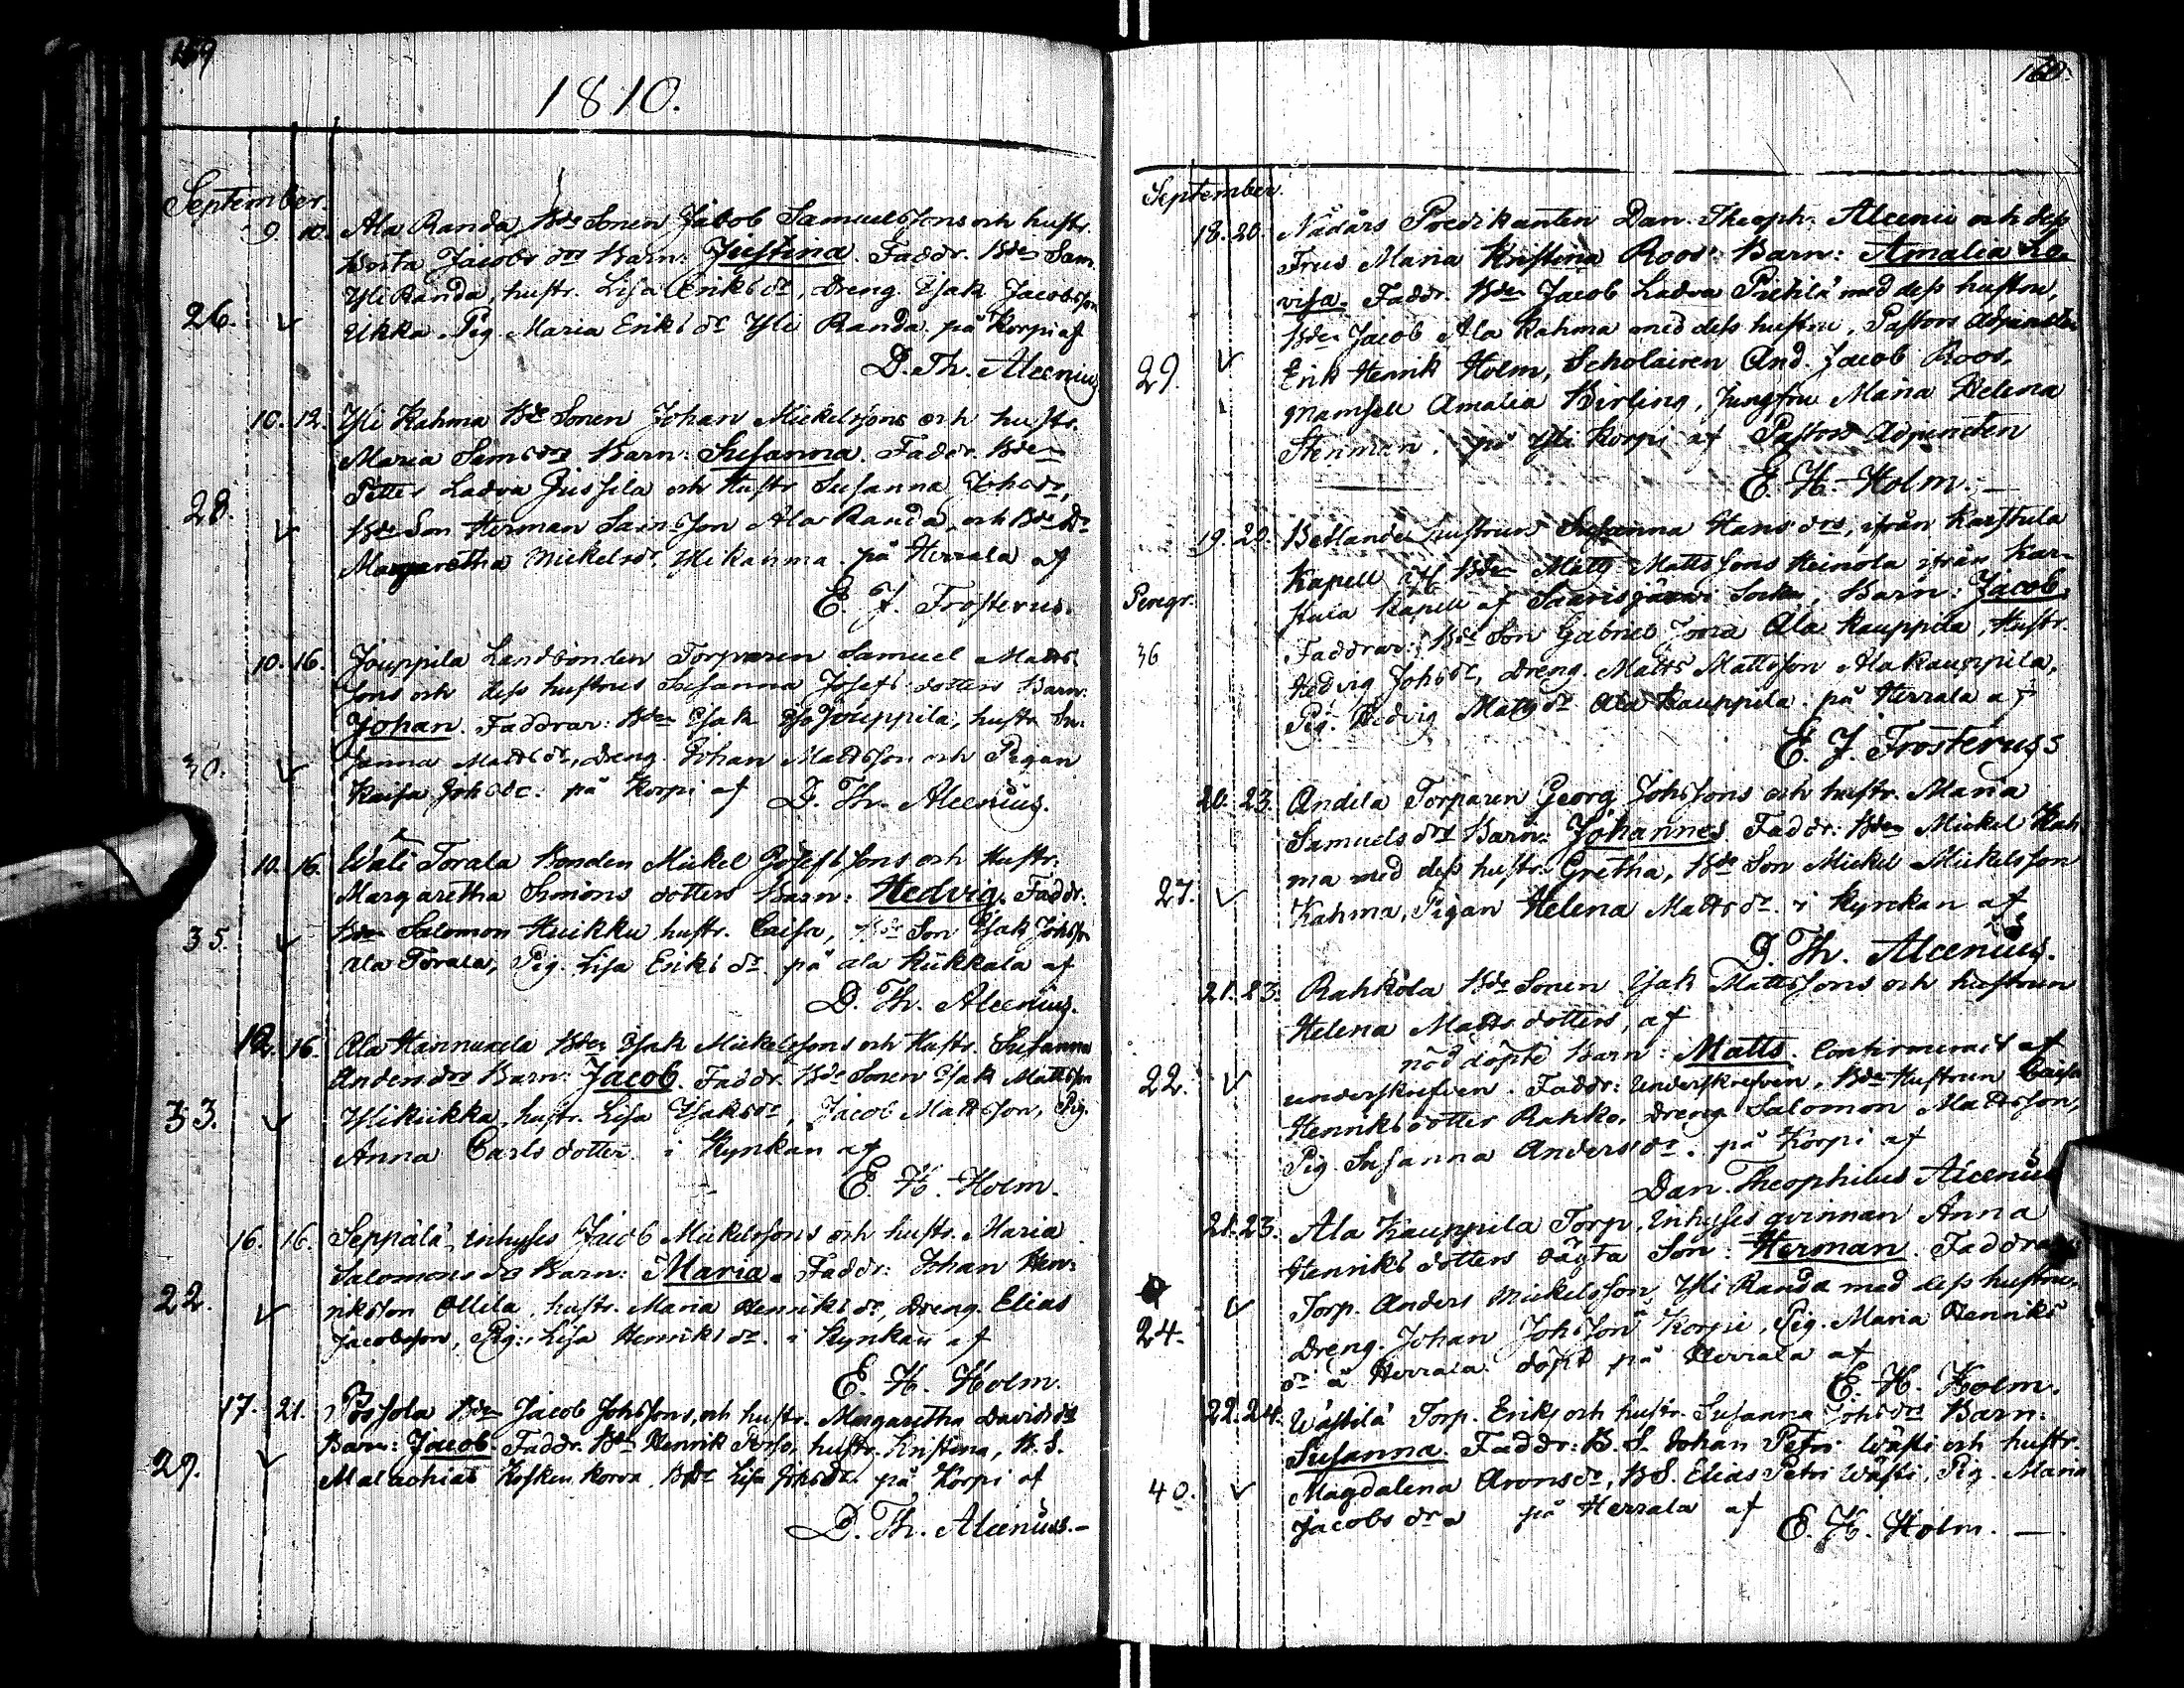 159
1810.
September.
9. 10. Ala Randa Bde Sonen Jacob Samuelssons och hustr.
Brita Jacobs drs Barn: Justina. Faddr. Bden Sam.
Yli Randa, hustr. Lisa Eriks dr, Dreng. Isak Jacobsson
26. Ukka. Pig. Maria Eriks dr Yli Randa på Korpi af
D. Th. Alcenius
10. 12. Yli Kahma Bde Sonen Johan Mickelssons och hustr.
Maria Sams drs Barn: Susanna. Faddr. Bden
Petter Ladva Jussila och Hustr Susanna Johs dr,
28. Bde Son Herman Samsson Ala Randa, och Bde Dr
Margaretha Mickels dr. Yli Kahma på Herrala af
E. J. Frosterus.
10. 16. Jouppila Landbonden Torparen Samuel Matts
sons och dess hustrus Susanna Josefs dotters Barn:
Johan. Faddrar: Bden Isak Jouppila, hustr Su-
sanna Matts dr, Dreng. Johan Mattsson och Pigan
30. Kaisa Johs dr. på Korpi af D. Th. Alcenius.
10. 16. Wäli Torala Bonden Mickel Josefssons och Hustr.
Margaretha Simons dotters Barn: Hedvig. Faddr.
35. Bden Salomon Huikku hustr. Caisa, Bde Son Isak Johsson
Ala Torala, Pig. Lisa Eriks dr. på Ala Kukkala af
D. Th. Alcenius.
12. 16. Ala Hannuxela Bden Isak Mickelssons och Hustr. Susanna
Anders drs Barn: Jacob. Faddr. Bde Sonen Isak Mattsson
33. Yli Kukka, hustr. Lisa Isaks dr, Jacob Mattsson, Pig.
Anna Carls dotter. i Kyrkan af
E. H. Holm.
16. 16. Seppälä Inhyses Jacob Mickelssons och hustr. Maria
Salomons drs Barn: Maria. Faddr: Johan Hen-
22. riksson Ollila, hustr. Maria Henriks dr, Dreng. Elias
Jacobsson, Pig: Lisa Henriks dr. i Kyrkan af
E. H. Holm.
17. 21. Possola Bden Jacob Johssons, och hustr. Margaretha Davids drs
Barn: Jacob. Faddr. Bden Henrik, hustr. Kristina, B. S.
29. Malachias Kosken Korva, Bde Lisa Johs dr. på Korpi af
D. Th. Alcenius.–
160.
September.
18. 20. Nådårs Predikanten Dan. Theoph. Alcenii och dess
Frus Maria Kristina Roos' Barn: Amalia Lo-
visa. Faddr. Bden Jacob Ladva Prittilä med dess hustru,
Bden Jacob Ala Kahma med dess hustru, Pastors Adjuncten
29. Erik Henrik Holm, Scholairen And. Jacob Roos,
Mamsell Amalia Kirling, Jungfru Maria Helena
Stenman. på Yli Korpi af Pastors Adjuncten
E. H. Holm.–
19. 20. Betlande hustrun Susanna Hans drs, ifrån Karstula
Kapell Bden Matts Mattssons Heinola ifrån Kar-
Peregr. stula Kapell af Saarisjärvi Socken, Barn: Jacob.
36 Faddrar: Bde Son Gabriel Jona Ala Kauppila, Hustr.
Hedvig Johs dr, Dreng. Matts Mattsson Ala Kauppila,
Pig. Hedvig Matts dr Ala Kauppila på Herrala af
E. J. Frosterus
20. 23. Andila Torparen Georg Johssons och hustr. Maria
Samuels drs Barn: Johannes. Faddr: Bden Mickel Kah
ma med dess hustr. Gretha, Bde Son Mickel Mickelsson
27. Kahma, Pigan Helena Matts dr. i Kyrckan af
D. Th. Alcenius.
21. 23. Rahkola Bde Sonen Isak Mattssons och hustrun
Helena Matts dotters, af
nöddöpte Barn: Matts. Confirmerait af
22. underskrefven. Faddr: Underskrefven, Bde Hustrun Caisa
Henriks dotter Rahko, Dreng Salomon Mattsson,
Pig Susanna Anders dr. på Korpi af
Dan. Theophilus Alcenius
21. 23. Ala Kauppila Torp. Inhyses qvinnan Anna
Henriks dotters oägta Son: Herman. Faddrar
Torp. Anders Mickelsson Yli Randa med dess hustru,
24. Dreng. Johan Johsson å Korpi, Pig. Maria Henriks
dr å Herrala. döpt på Herrala af
E. H. Holm.
22. 24. Wästilä Torp. Eriks och hustr. Susanna Johs drs Barn:
Susanna. Faddr: B. S. Johan Petri Wästi och hustr.
40. Magdalena Arons dr, B S. Elias Petri Wästi, Pig. Maria
Jacobs dr på Herrala af E. H. Holm. —